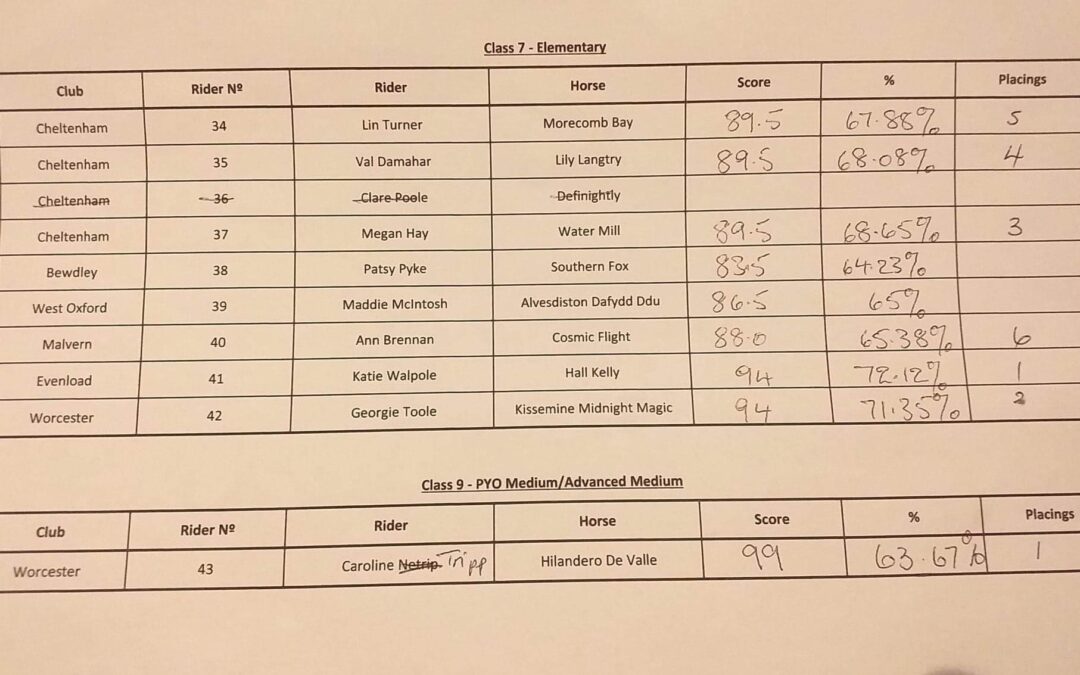 Class 7 - Elementary
Club Rider Nº Rider Horse Score % Placings
Cheltenham 34 Lin Turner Morecomb Bay 89.5 67.88% 5
Cheltenham 35 Val Damahar Lily Langtry 89.5 68.08% 4
Cheltenham 36 Clare Poole Definightly
Cheltenham 37 Megan Hay Water Mill 89.5 68.65% 3
Bewdley 38 Patsy Pyke Southern Fox 83.5 64.23%
West Oxford 39 Maddie McIntosh Alvesdiston Dafydd Ddu 86.5 65%
Malvern 40 Ann Brennan Cosmic Flight 88.0 65.38% 6
Evenload 41 Katie Walpole Hall Kelly 94 72.12% 1
Worcester 42 Georgie Toole Kissemine Midnight Magic 94 71.35% 2
Class 9 - PYO Medium/Advanced Medium
Club Rider Nº Rider Horse Score % Placings
Worcester 43 Caroline Netrip Tripp Hilandero De Valle 99 63.67% 1